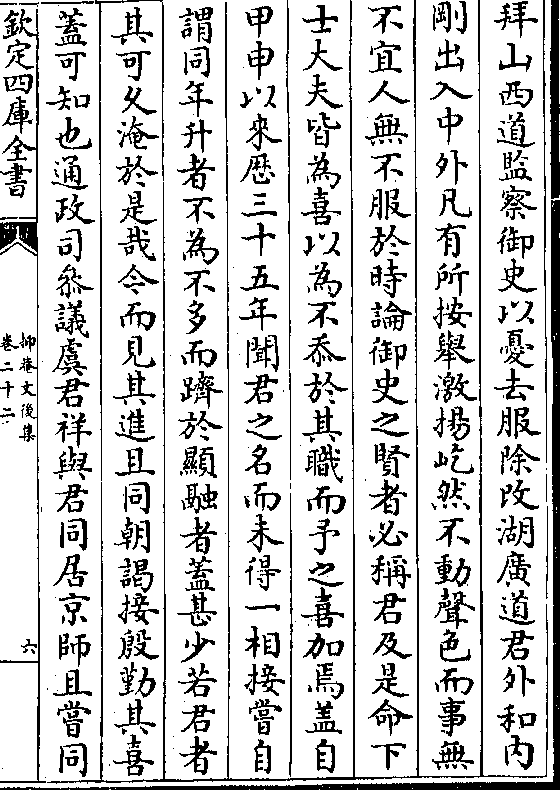 拜山西道監察御史以憂去服除改湖廣道君外和内
剛出入中外凡有所按舉激揚屹然不動聲色而事無
不宜人無不服於時論御史之賢者必稱君及是命下
士大夫皆為喜以為不忝於其職而予之喜加焉蓋自
甲申以來歴三十五年聞君之名而未得一相接嘗自
謂同年升者不為不多而躋於顯融者蓋甚少若君者
其可久淹於是哉今而見其進且同朝謁接殷勤其喜
蓋可知也通政司叅議虞君祥與君同居京師且嘗同
欽定四庫全書
抑菴文後集
卷二十二
六